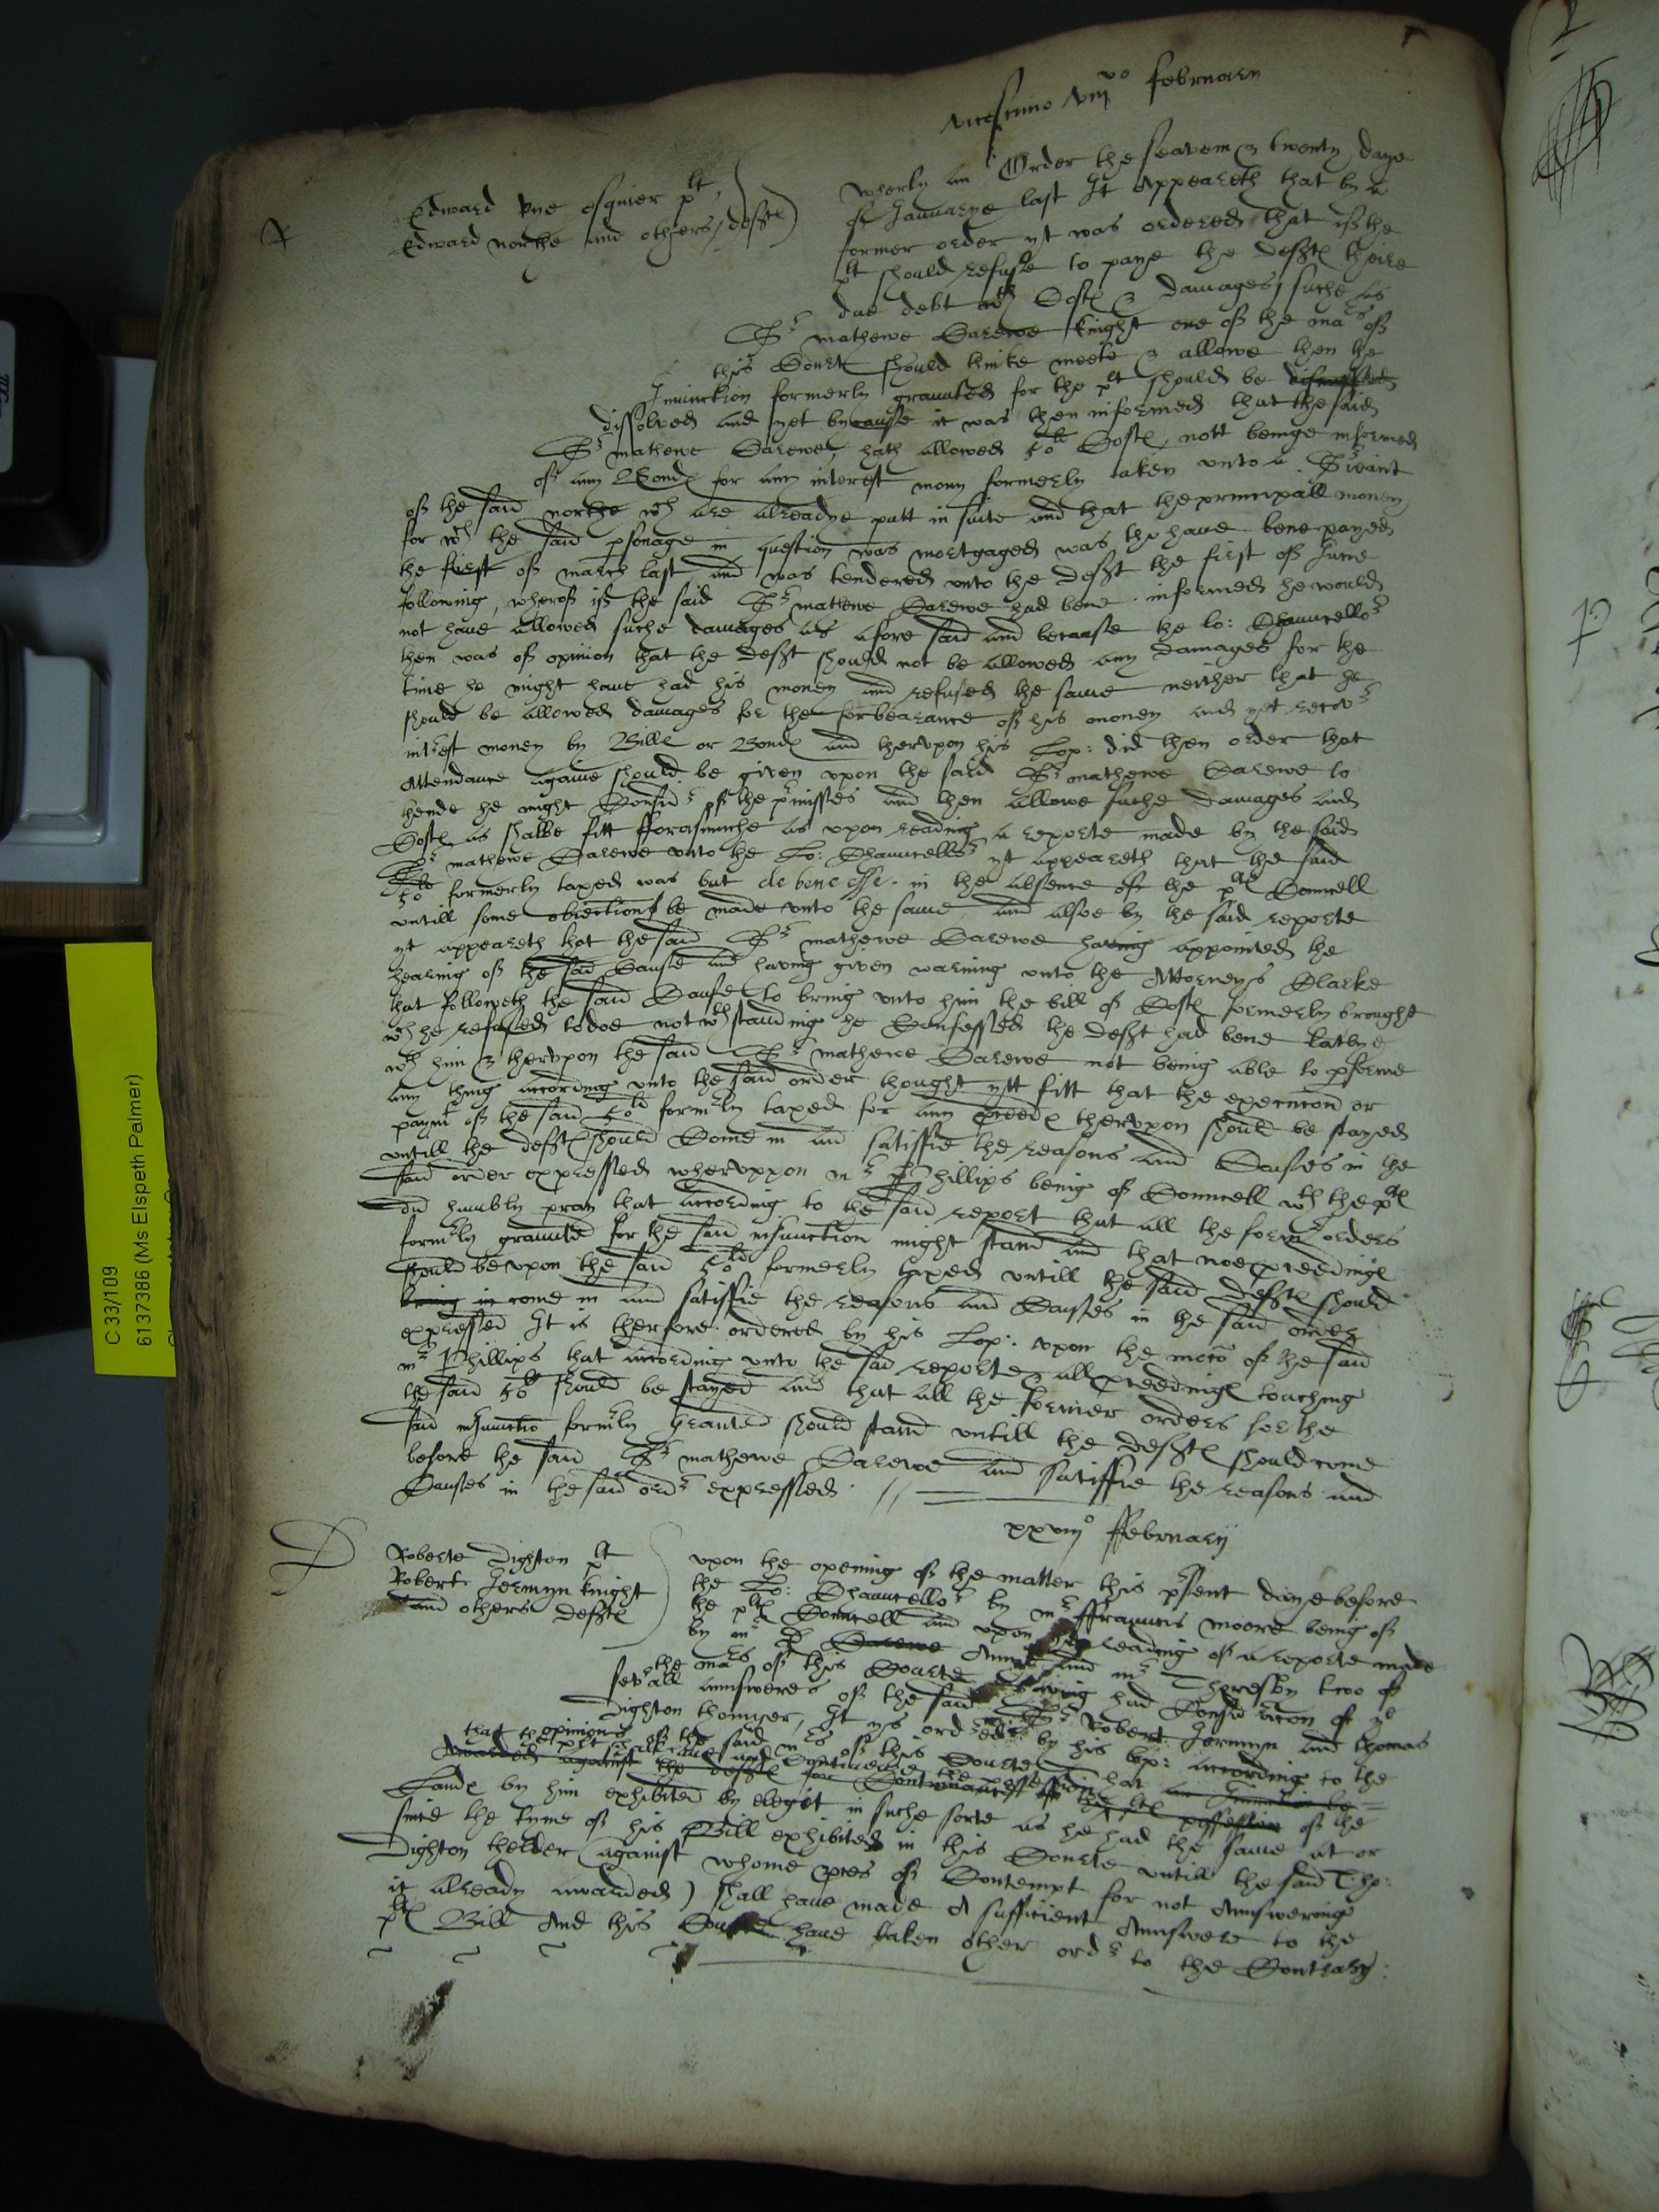 vicesimo viijvo februarii
Edward Pye esquier plt
Edward Northe and others defts
wherby an Order the seaven & twenty daye
of Januarye last It appeareth that by a
former order yt was ordered that if the
plt should refuse to paye the defts theire
due debt wth Costs & damages suche as
Sr mathewe Carewe knight one of the mars of
this Court should thinke meete & allowe then the
Iniunction formerly graunted for the plt should be
dissolved and yet bycause it was then informed that the said
Sr mathewe Carewe, hath allowed 50li Costs, nott beinge informed
of any Bonds for any interest mony formerly taken unto a Srvant
of the said Northe wch are alreadye putt in suite and that the principall money
for wch the said psonage in question was mortgaged was tho have bene payed
the first of march last and was tendered unto the deft the first of June
following, wherof if the said Sr mathewe Carewe had bene informed he would
not have allowed suche damages as afore said and because the lo: Chauncellor
then was of opinion that the deft should not be allowed any damages for the
time he might have had his money and refused the same neither that he
should be allowed damages for the forbearance of his money and yet recovr
intrest money by Bills or Bonds and therupon his Lop: did then order that
Attendance againe should be given upon the said Sr mathewe Carewe to
thende he might Considr of the prmisses and then allowe suche damages and
Costs as shalbe fitt fforasmuche as upon reading a reporte made by the said
Sr mathewe Carewe unto the Lo: Chauncellor yt appeareth that the said
50li formerly taxed was but de bene esse in the absence of the plts Councell
untill some obiections be made unto the same, and alsoe by the said reporte
yt appeareth that the said Sr mathewe Carewe having appointed the
hearing of the said Cause and having given warning unto the Attorneys Clarke
that followeth the said Cause to bring unto him the bill of Costs formerly brought
wch he refused to doe notwthstanding he Confessed the deft had bene latlye
wth him & therupon the said Sr mathewe Carewe not being able to pforme
any thing according unto the said order thought ytt fitt that the execucion or
paymt of the said 50li formrly taxed for any pceeds therupon should be stayed
untill the defts should Come in and satisfie the reasons and Causes in the
said order expressed wheruppon mr Phillips being of Councell wth the plts
did humbly pray that according to the said report that all the formr orders
formrly graunted for the said iniunction might stand and that noe pceedings
should be upon the said 50li formerly taxed untill the said defts should
come in and satisfie the reasons and Causes in the said order
expressed It is therfore ordered by his Lop: upon the moco of the said
mr Phillips that according unto the said reporte all pceedings touching
the said 50li should be stayed and that all the former orders for the
said iniunctio formrly graunted should stand untill the defts should come
before the said Sr mathewe Carewe and satisfie the reasons and
Causes in the said ordr expressed.
xxviijo ffebruarij
Roberte Dighton plt
Robert Jermyn knight
and others defts
upon the opening of the matter this psent daye before
the Lo: Chauncellor by mr ffrauncis moore being of
the plts Councell and upon reading of a reporte made
by mr D Carewe and mr Theresby two of
the mars of this Courte having had Consideracon of ye
sevrall answeres of the said Sr Robert Jermyn and thomas
Dighton thonger, It ys ordered by his lop: according to the
opinion of the said mrs of this Courte that an Iniunction be
that the plt shall have and Continewe the possession
Awarded against the defts for Contynuance of the plts possession of the
Lands by him exhibited by elegit in suche sorte as he had the same at or
since the tyme of his Bill exhibited in this Courte untill the said Tho:
Dighton thelder (against whome pces of Contempt for not Annswering
is already awarded) shall have made A sufficient Annswere to the
plts Bill And this Courte have taken other ordr to the Contrary:
C 33/109
6137386 (Ms Elspeth Palmer)